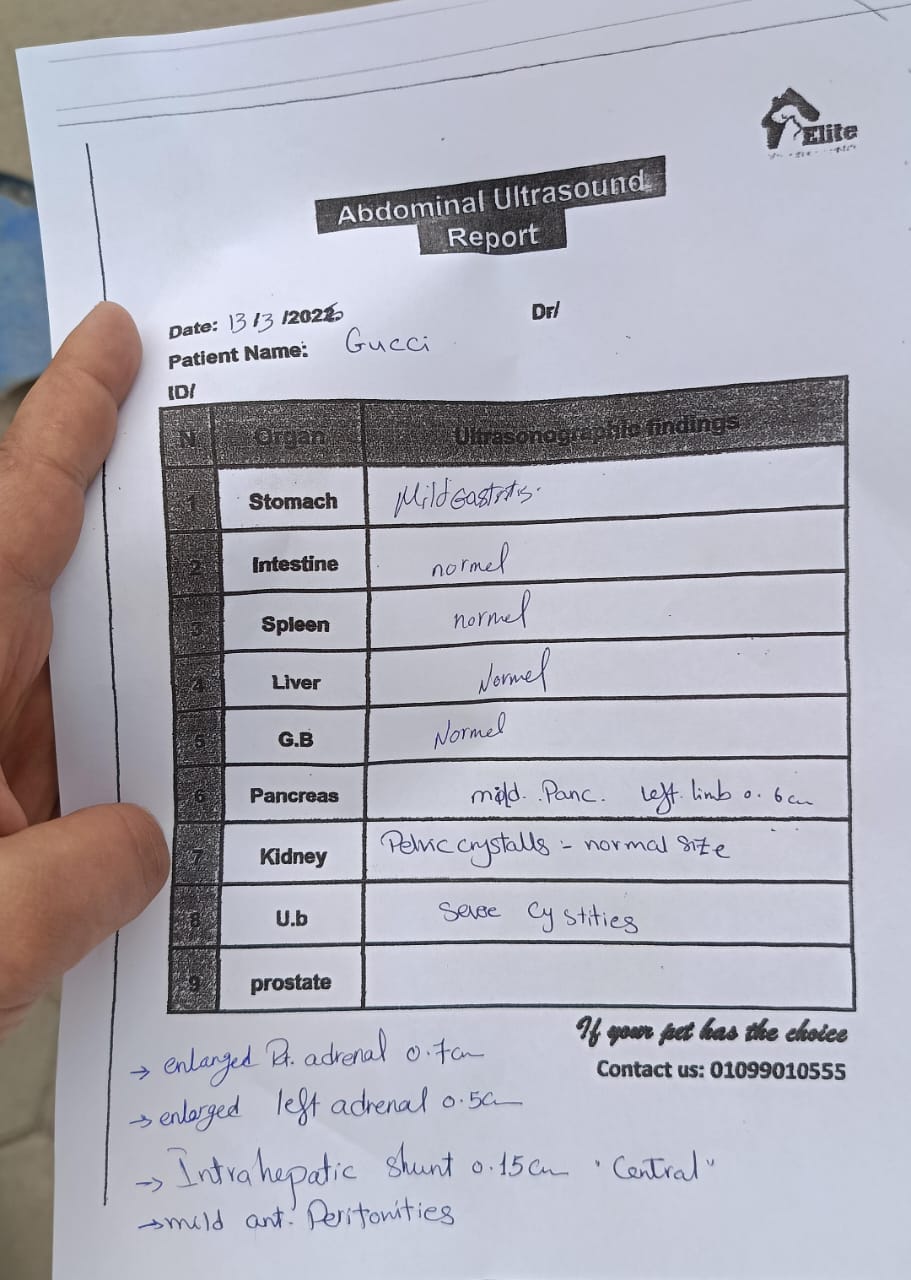 Elite
Abdominal Ultrasound
Report
Date: 13/3/2025
Dr/
Patient Name: Gucci
ID/
N. Organ Ultrasonographic findings
1 Stomach Mild Gastrtis.
2 Intestine normel
3 Spleen normel
4 Liver Normel
5 G.B Normel
6 Pancreas mild. Panc. left limb 0.6 cm
7 Kidney Pelvic crystalls - normal size
8 U.b Cystities
9 prostate
If your pet has the choice
Contact us: 01099010555
→ enlarged Rt. adrenal 0.7cm
→ enlarged left adrenal 0.5cm
→ Intrahepatic shunt 0.15cm "Central"
→ mild ant. Peritonities